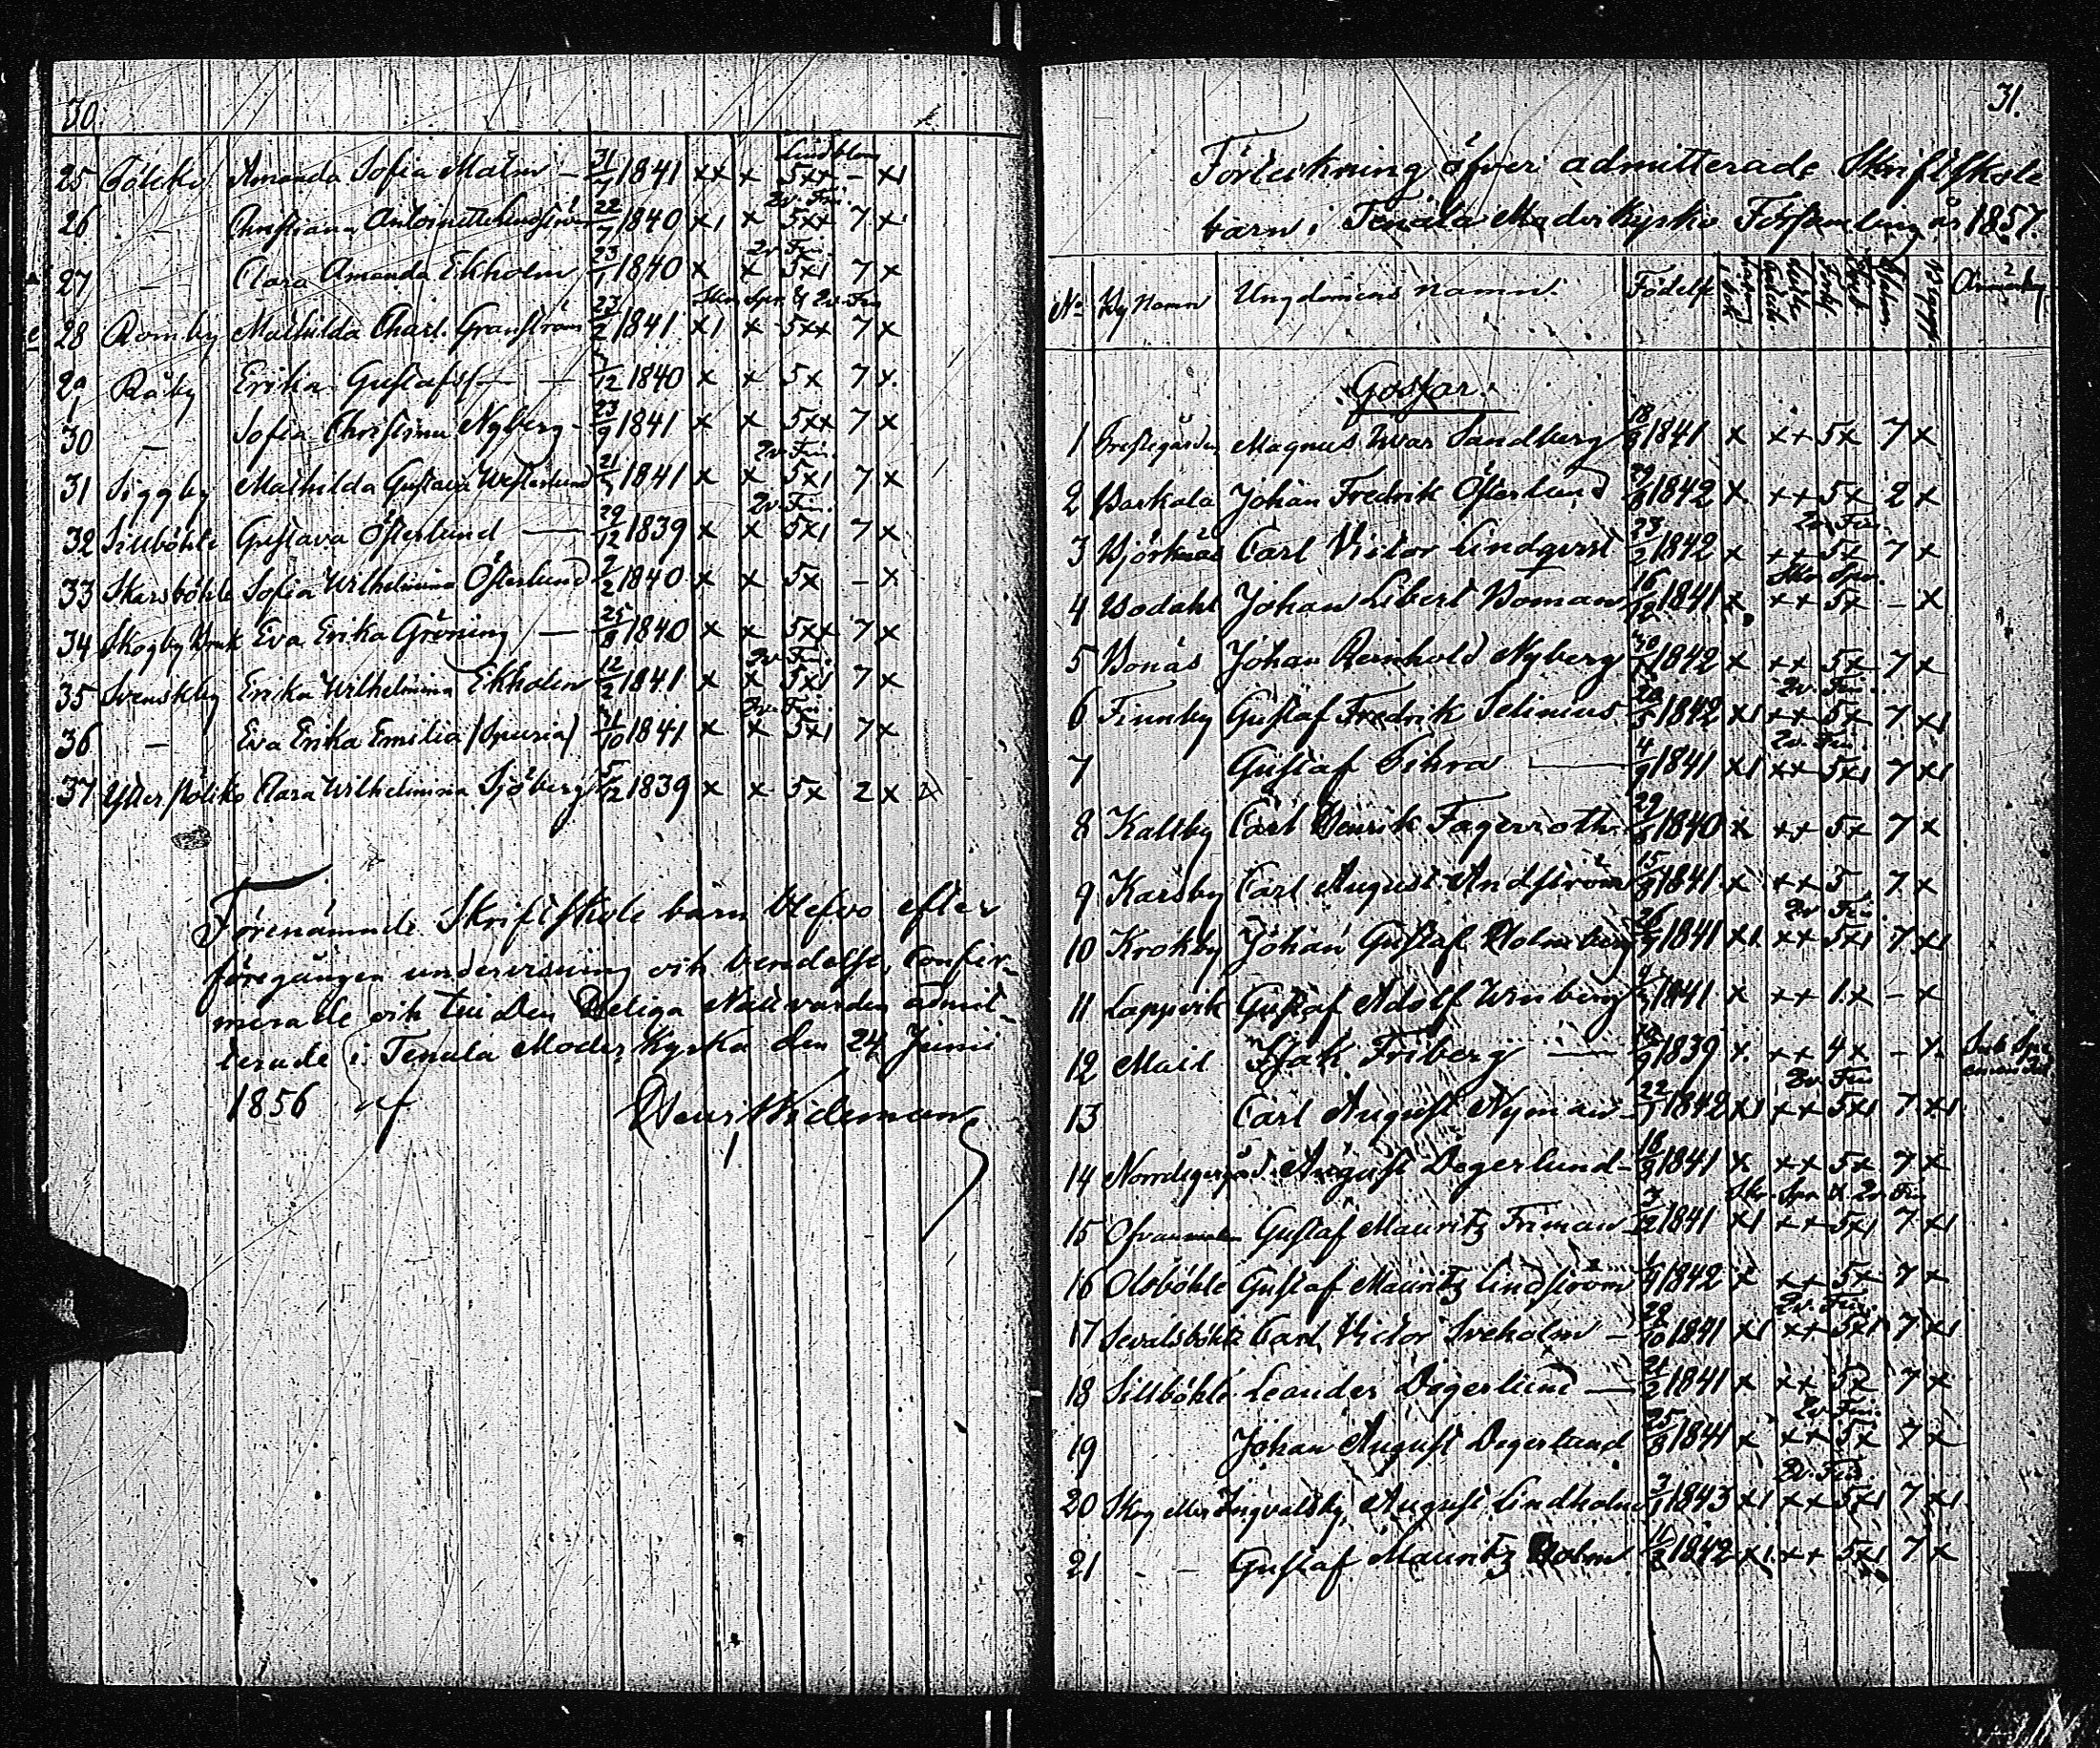 30.
Lindblom
25 Bölsko Amanda Sofia Malm — 31/7 1841 xx x 5xx — x1
Zv. Fin.
26 — Christiana Antoinetta Lindström 22/7 1840 x1 x 5xx 7 x
Zv. Fin.
27 — Clara Amanda Ekholm 23/1 1840 x x 5x1 7 x
Skr. Spr. & Zv. Fin
28 Romby Mathilda Charl. Granström 23/2 1841 x1 x 5xx 7 x
29 Råby Erika Gustafsf — /12 1840 x x 5x 7 x
30 — Sofia Christina Nyberg — 23/9 1841 x x 5xx 7 x
Zv. Fin.
31 Siggby Mathilda Gustava Westerlund 21/ 1841 x x 5x1 7 x
Zv. Fin.
32 Sillböhle Gustava Österlund — 29/12 1839 x x 5x1 7 x
33 Skarsböhle Sofia Wilhelmina Österlund 2/2 1840 x x 5x — x
34 Skogby Bruk Eva Erika Gröning — 25/8 1840 x x 5xx 7 x
Zv. Fin.
35 Svenskby Erika Wilhelmina Ekholm 12/2 1841 x x 5x1 7 x
Zv. Fin.
36 — Eva Erika Emilia (Spuria) /10 1841 x x 5x1 7 x
37 Ytter Bölsko Clara Wilhelmina Sjöberg 5/12 1839 x x 5x 2 x
Förenämnde Skriftskole barn blefvo efter
föregången undervisning och beredelse, Confir-
merade och till den Heliga Nattvarden admit-
terade i Tenala Moder Kyrka den 24 Junii
1856 af Henr. Wideman
31.
Förteckning öfver admitterade Skriftskole
barn i Tenala Moder Kyrko Församling år 1857.
No By Namn Ungdomens namn. Födelse Anmärkn.
Gossar.
1 Prestegården Magnus Ivar Sandberg 18/8 1841 x x+ 5x 7 x
2 Barkala Johan Fredrik Österlund 29/8 1842 x ++ 5x 2 x
Zv. Fin.
3 Björknäs Carl Victor Lindqvist 23/2 1842 x ++ 5x 7 x
Skr. Spr.
4 Bodahl Johan Libert Boman 16/12 1841 x ++ 5x — x
5 Bonäs Johan Reinhold Nyberg 1842 x ++ 5x 7 x
Zv. Fin.
6 Finnby Gustaf Fredrik Selinius 20/5 1842 x1 ++ 5x 7 x1
Zv. Fin.
7 Gustaf Sihra — 4/9 1841 x1 ++ 5x1 7 x1
8 Kallby Carl Henrik Fagerroth 29/8 1840 x ++ 5x 7 x
9 Karsby Carl August Andström 15/8 1841 x ++ 5 7 x
Zv. Fin.
10 Krokby Johan Gustaf Holmberg 26/9 1841 x1 ++ 5x1 7 x1
11 Lappvik Gustaf Adolf Winberg 1841 x ++ 1x — x
12 Mail Isak Friberg — /9 1839 x ++ 4x — x
Zv. Fin
13 Carl August Nyman 22/1 1842 x1 ++ 5x1 7 x1
14 Norrdegergård August Degerlund — 18/9 1841 x ++ 5x 7 x
Skr. Spr. & Zv. Fin
15 Ofvanmalm Gustaf Mauritz Friman 3/12 1841 x1 ++ 5x1 7 x1
16 Olsböhle Gustaf Mauritz Lindström 1842 x ++ 5x 7 x
Zv. Fin.
17 Sevalsböhle Carl Victor Sveholm — 28/10 1841 x1 ++ 5x1 7 x1
18 Sillböhle Leander Degerlund — 21/2 1841 x ++ 5x 7 x
Zv. Fin.
19 Johan August Degerlund 25/8 1841 x ++ 5x 7 x
Zv. Fin.
20 Skog eller Ingvalsby August Lindholm 3/1 1843 x1 ++ 5x1 7 x1
21 — — Gustaf Mauritz Holm 11/2 1842 x1 ++ 5x1 7 x